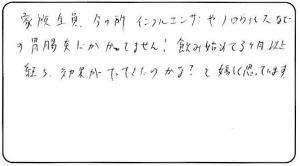 家族全員、今の所 インフルエンザやノロウィルスなど
の胃腸炎にかかってません！飲み始めて3ヶ月以上
経ち、効果がでてきたのかな？と嬉しく思っています